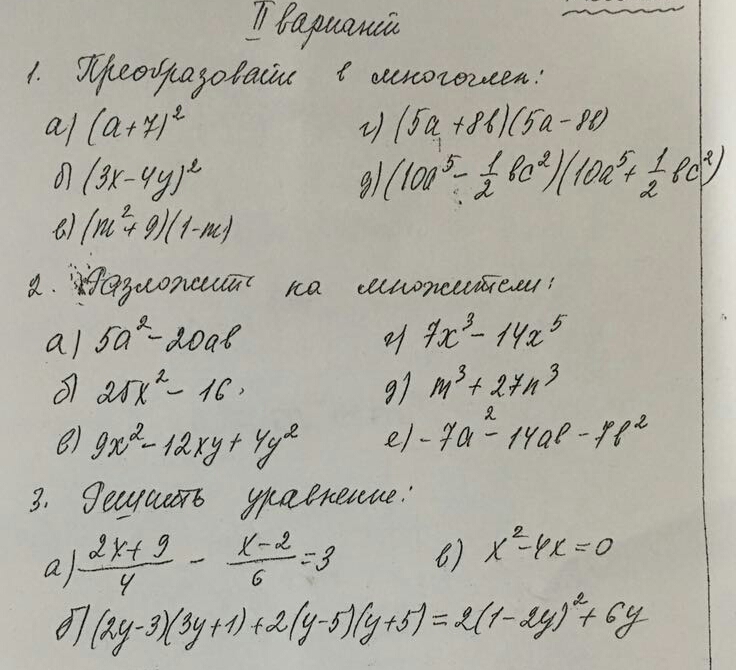 II вариант
1. Преобразовать в многочлен:
а) (a+7)² г) (5a+8b)(5a-8b)
б) (3x-4y)² д) (10a⁵ - 1/2 bc²)(10a⁵ + 1/2 bc²)
в) (m²+9)(1-m)
2. Разложить на множители:
а) 5a²-20ab г) 7x³-14x⁵
б) 25x²-16 д) m³+27n³
в) 9x²-12xy+4y² е) -7a²-14ab-7b²
3. Решить уравнение:
а) (2x+9)/4 - (x-2)/6 = 3 в) x²-4x=0
б) (2y-3)(3y+1)+2(y-5)(y+5)=2(1-2y)²+6y